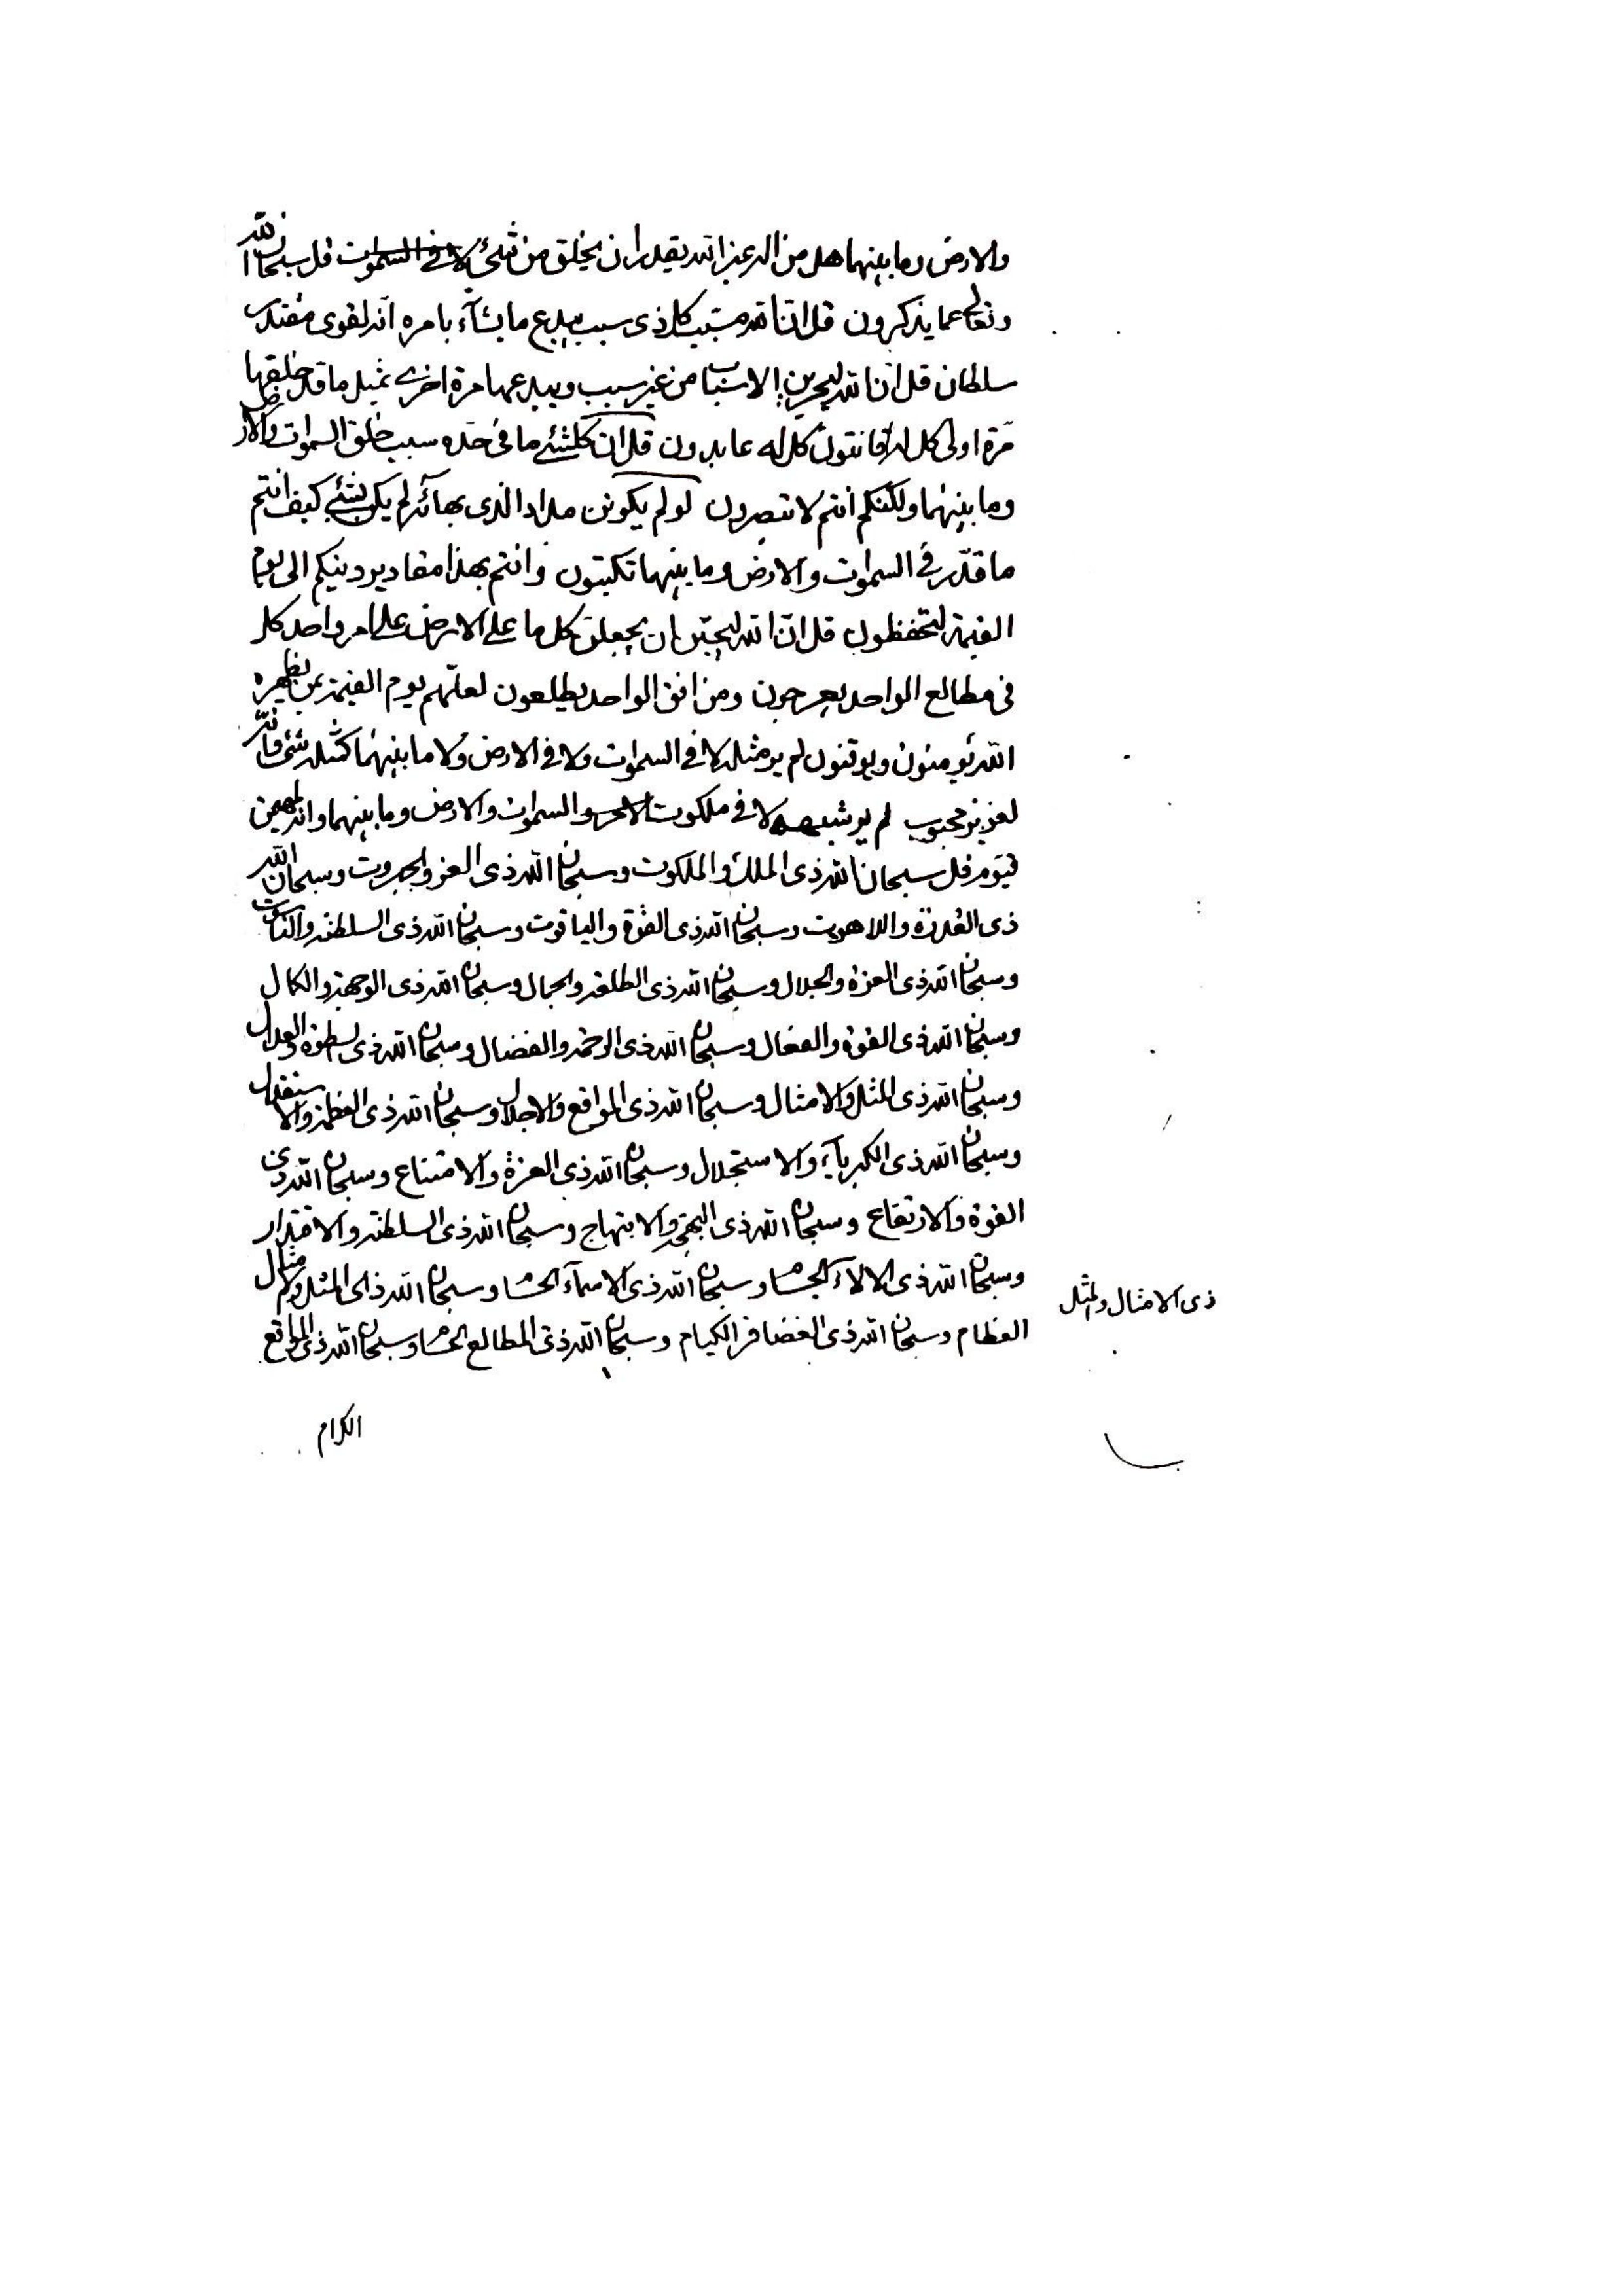 والارض وما بينهما هل من اله غير الله يقدر ان يخلق من شئ لا في السموات قل سبحان الله
وتعالى عما يذكرون قل ان الله مسبب كل ذى سبب يبدع ما يشآء بامره انه لقوى مقتدر
سلطان قل ان الله الاسباب من غير سبب ويبدعها مرة اخرى بمثل ما قد خلقها
مرة اولى كل له قانتون كل له عابدون قل ان كلشئ ما في حده سبب خلق السموات والارض
وما بينهما ولكنكم انتم لا تبصرون لو لم يكونن مداد الذى بهائه لم يكن بشئ كيف انتم
ما قدر في السموات والارض وما بينهما تكتبون وانتم بهذا مقادير دينكم الى يوم
القيمة لتحفظون قل ان الله ليحبن ان يجعلن كل ما على الارض على امر واحد كل
في مطالع الواحد يعرجون ومن افق الواحد يطلعون لعلهم يوم القيمة بمن يظهره
الله يؤمنون ويوقنون لم ير مثله لا في السموات ولا في الارض ولا ما بينهما كمثله شئ وانه
لعزيز محبوب لم ير شبهه لا في ملكوت الامر والسموات والارض وما بينهما وانه لمهيمن
قيوم قل سبحان الله ذى الملك والملكوت وسبحان الله ذى العز والجبروت وسبحان الله
ذى القدرة واللاهوت وسبحان الله ذى القوة والياقوت وسبحان الله ذى السلطنة والناسوت
وسبحان الله ذى العزة والجلال وسبحان الله ذى الطلعة والجمال وسبحان الله ذى الوجهة والكمال
وسبحان الله ذى القوة والفعال وسبحان الله ذى الرحمة والفضال وسبحان الله ذى السطوة والعدال
وسبحان الله ذى المثل والامثال وسبحان الله ذى المواقع والاجلال وسبحان الله ذى العظمة والاستقلال
وسبحان الله ذى الكبريآء والاستجلال وسبحان الله ذى العزة والامتناع وسبحان الله ذى
القوة والارتفاع وسبحان الله ذى البهجة والابتهاج وسبحان الله ذى السلطنة والاقتدار
وسبحان الله ذى الالاء الحسنى وسبحان الله ذى الاسمآء الحسنى وسبحان الله ذى المثل والامثال
ذى الامثال والمثل
العظام وسبحان الله ذى الفضا الكيام وسبحان الله ذى المطالع الحسنى وسبحان الله ذى المواقع
الكرام